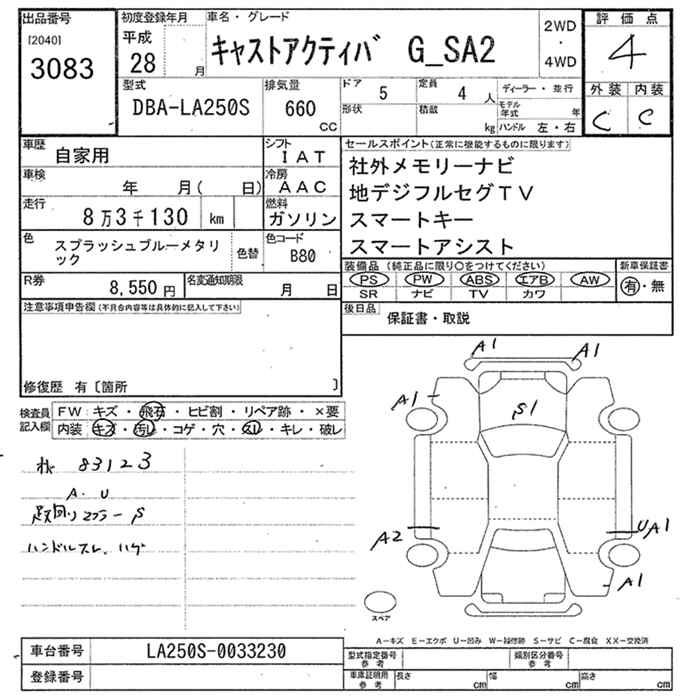 出品番号
[2040]
3083
初度登録年月
平成
28 月
車名・グレード
キャストアクティバ G_SA2
2WD
・
4WD
評価点
4
外装 内装
C C
型式
DBA-LA250S
排気量
660
CC
ドア
5
定員
4 人
形状
積載
kg
ディーラー・並行
モデル年式 年
ハンドル 左・右
車歴
自家用
シフト
IAT
車検
年 月( 日)
冷房
AAC
走行
8万3千130 km
燃料
ガソリン
色
スプラッシュブルーメタリック
色替
色コード
B80
R券
8,550円
名変通知期限
月 日
セールスポイント(正常に機能するものに限ります)
社外メモリーナビ
地デジフルセグTV
スマートキー
スマートアシスト
装備品(純正品に限り〇をつけてください)
PS PW ABS エアB AW
SR ナビ TV カワ
新車保証書
有・無
後日品
保証書・取説
注意事項申告欄(不具合内容等は具体的に記入して下さい)
修復歴 有〔箇所 〕
検査員記入欄
FW:キズ・飛石・ヒビ割・リペア跡・×要
内装:キズ・汚レ・コゲ・穴・スレ・キレ・破レ
83123
A.U
ハンドルスレ、ハゲ
A1
A1
A1
S1
A2
UA1
A1
スペア
A-キズ E-エクボ U-凹み W-補修跡 S-サビ C-腐食 XX-交換済
車台番号
LA250S-0033230
登録番号
型式指定番号
参考
類別区分番号
参考
車庫証明用
参考
長さ cm
幅 cm
高さ cm